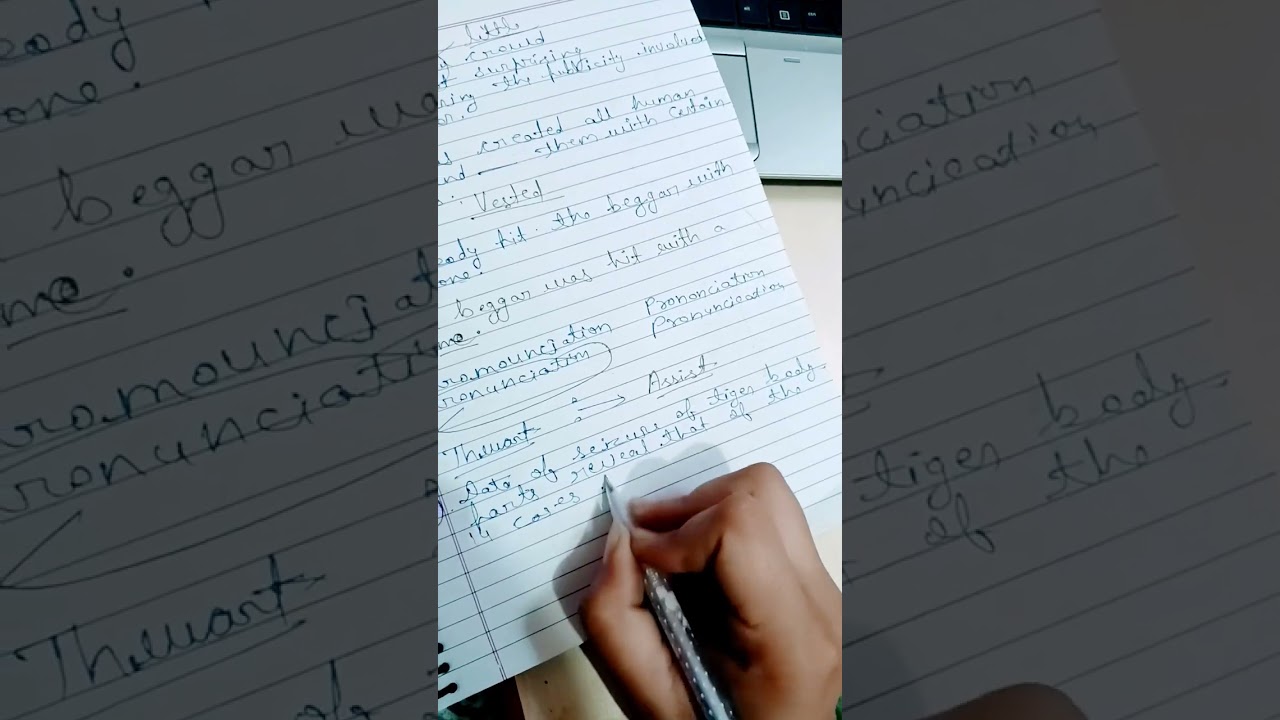 little
crowd
surprising
the publicity involved
created all human
them with certain
Vested
hit. the beggar with
one.
beggar was hit with a
Prononciation
Pronuncication
romounciation
ronunciation
Thwart → Assist
Data of seizure of tiger body
parts reveal that of the
14 cases